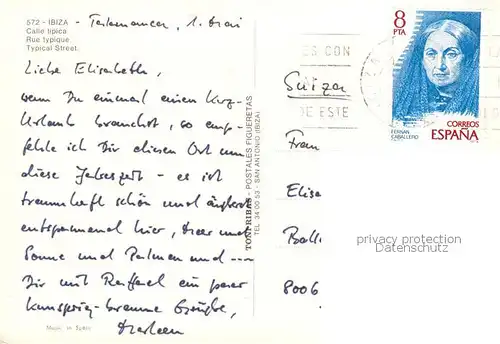 572 - IBIZA - Talamanca, 1. Mai
Calle tipica
Rue typique.
Typical Street.
Liebe Elisabeth,
wenn Du einmal einen Kurz-
Urlaub brauchst, so emp-
fehle ich Dir diesen Ort um
diese Jahreszeit - es ist
traumhaft schön und äußerst
entspannend hier, Meer und
Sonne und Palmen und ---
Dir mit Raffael ein paar
braune Grüße,
Marleen
Made in Spain
TONI RIBAS - POSTALES FIGUERETAS
TEL. 34 00 53 - SAN ANTONIO (IBIZA)
8
PTA
FERNAN
CABALLERO
CORREOS
ESPAÑA
ES CON
DE ESTE
Suiza
Frau
Elisa
8006
privacy protection
Datenschutz